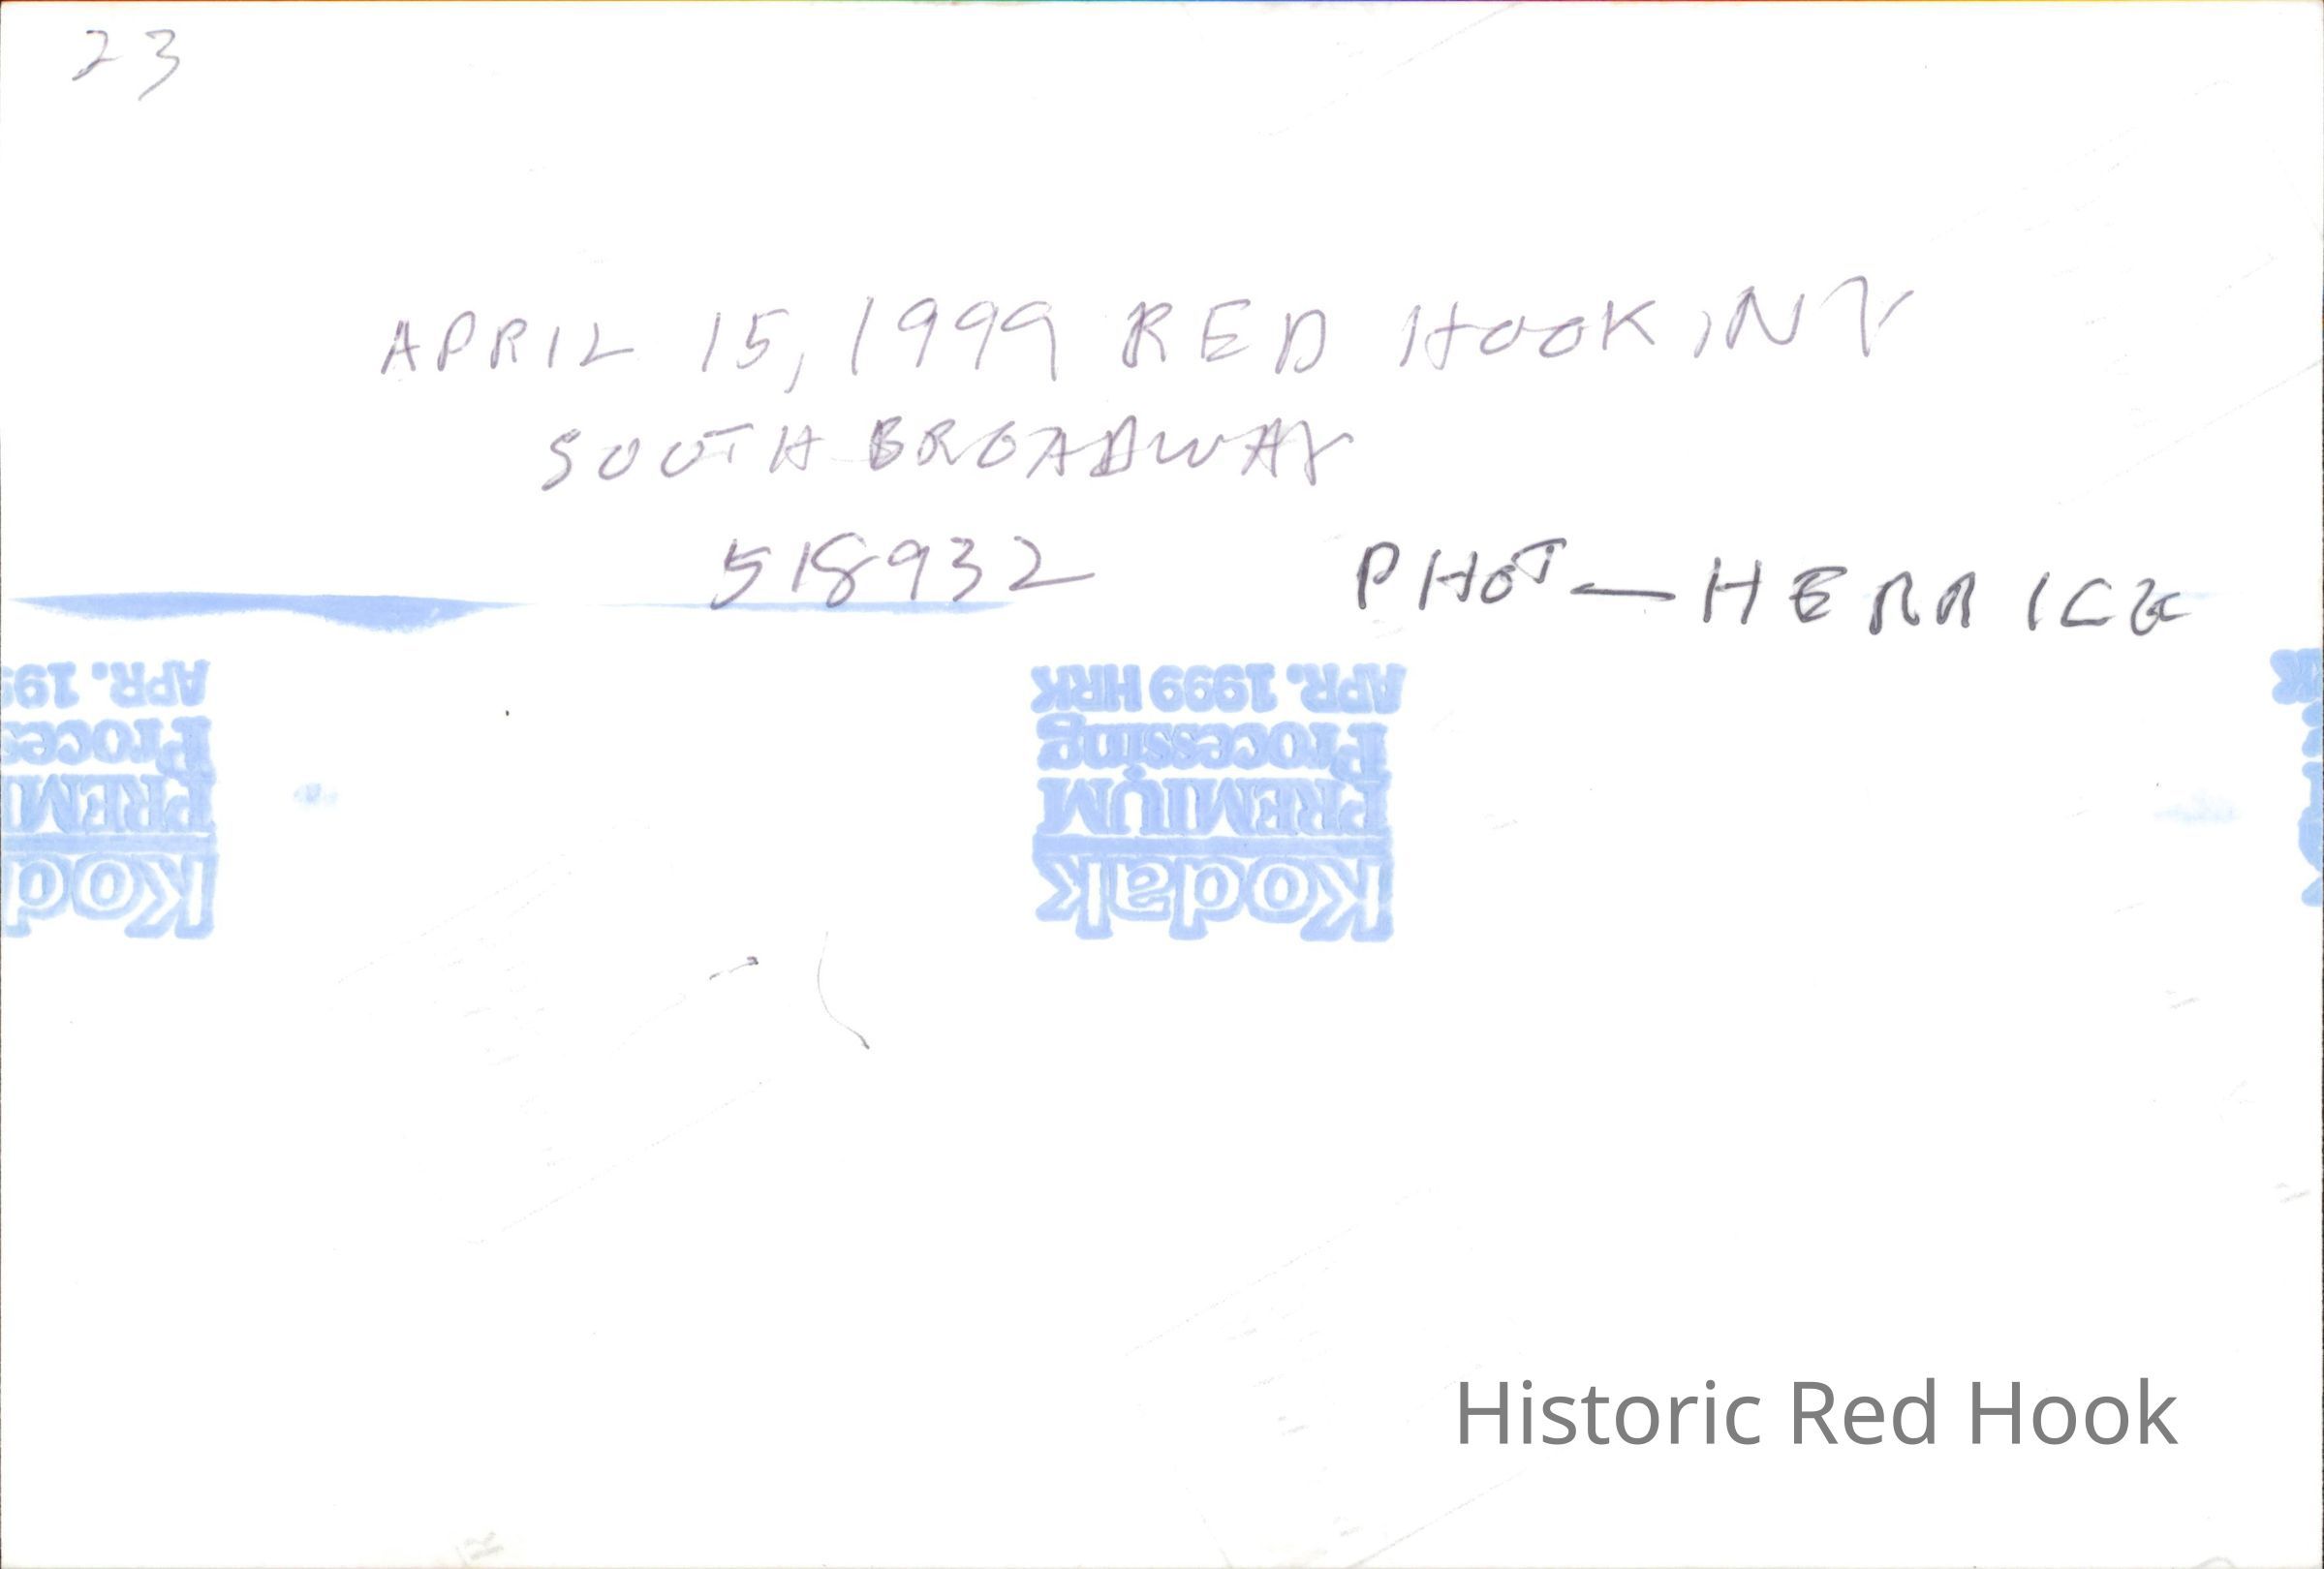 23
APRIL 15, 1999 RED HOOK, NY
SOUTH BROADWAY
518932 PHOT — HERRICK
APR. 199
Proces
PREM
Kod
APR. 1999 HRK
Processing
PREMIUM
Kodak
Historic Red Hook